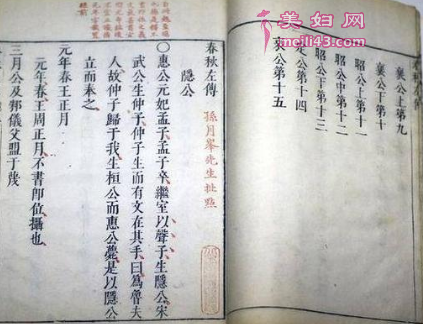 美妇网
www.meili43.com
襄公上第九
襄公下第十
昭公上第十一
昭公中第十二
昭公下第十三
定公第十四
哀公第十五
春秋左傳
隱公
孫月峯先生批點
○惠公元妃孟子孟子卒繼室以聲子生隱公宋
武公生仲子仲子生而有文在其手曰爲魯夫
人故仲子歸于我生桓公而惠公薨是以隱公
立而奉之
元年春王正月
元年春王周正月不書即位攝也
三月公及邾儀父盟于蔑